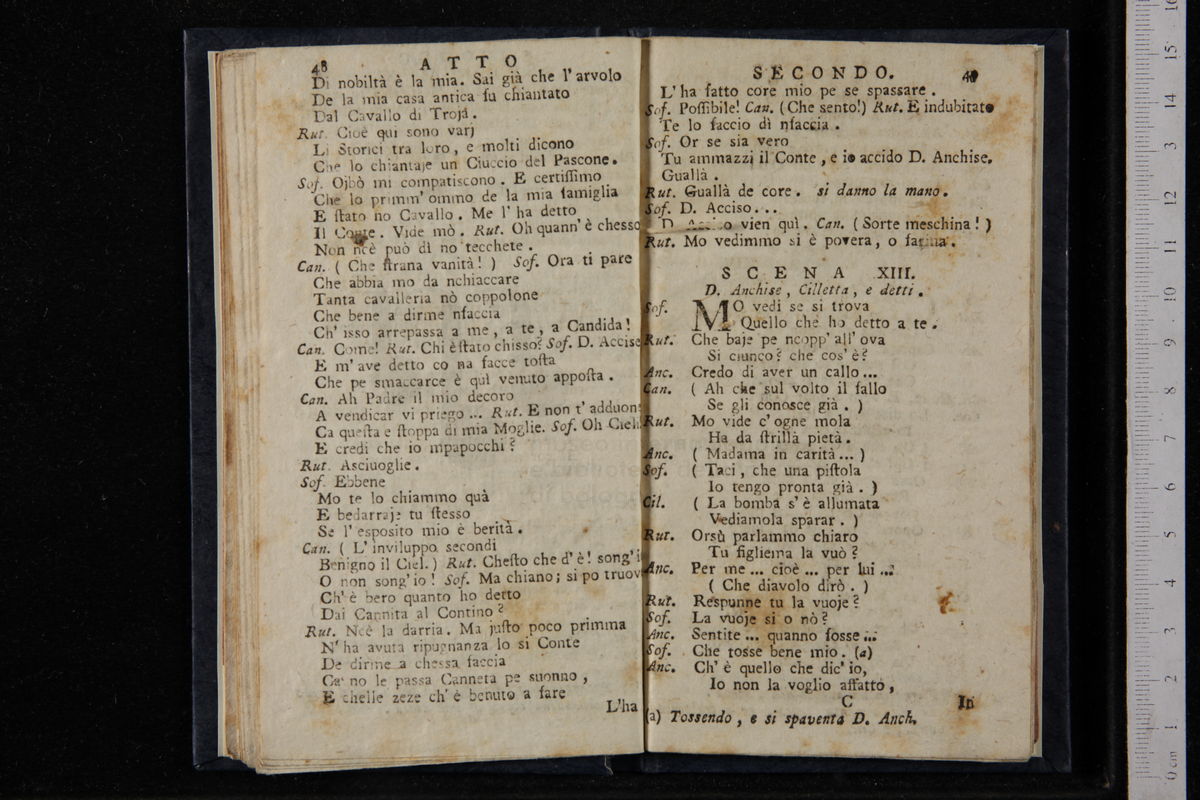 48 ATTO
Di nobiltà è la mia. Sai già che l'arvolo
De la mia casa antica fu chiantato
Dal Cavallo di Troja.
Rut. Cioè qui sono varj
Li Storici tra loro, e molti dicono
Che lo chiantaje un Ciuccio del Pascone.
Sof. Ojbò mi compatiscono. E certiſſimo
Che lo primm' ommo de la mia famiglia
E ſtato no Cavallo. Me l'ha detto
Il Conte. Vide mò. Rut. Oh quann'è chesso
Non ncè può dì no tecchete.
Can. ( Che ſtrana vanità! ) Sof. Ora ti pare
Che abbia mo da nchiaccare
Tanta cavalleria nò coppolone
Che bene a dirme nfaccia
Ch'isso arrepassa a me, a te, a Candida!
Can. Come! Rut. Chi è ſtato chisso? Sof. D. Accise
E m'ave detto co na facce toſta
Che pe smaccarce è quì venuto appoſta.
Can. Ah Padre il mio decoro
A vendicar vi priego ... Rut. E non t'adduon
Ca queſta e ſtoppa di mia Moglie. Sof. Oh Cieli
E credi che io mpapocchi?
Rut. Asciuoglie.
Sof. Ebbene
Mo te lo chiammo quà
E bedarraje tu ſtesso
Se l'esposito mio è berità.
Can. ( L'inviluppo secondi
Benigno il Ciel. ) Rut. Cheſto che d'è! song'i
O non song'io! Sof. Ma chiano; si po truov
Ch'è bero quanto ho detto
Dai Cannita al Contino?
Rut. Ncè la darria. Ma juſto poco primma
N'ha avuta ripugnanza lo si Conte
De dirme a chessa faccia
Ca no le passa Canneta pe suonno,
E chelle zeze ch'è benuto a fare
L'ha
SECONDO. 49
L'ha fatto core mio pe se spassare.
Sof. Poſſibile! Can. (Che sento!) Rut. E indubitato
Te lo faccio dì nfaccia.
Sof. Or se sia vero
Tu ammazzi il Conte, e io accido D. Anchise.
Guallà.
Rut. Guallà de core. si danno la mano.
Sof. D. Acciso...
D. Acciso vien quì. Can. ( Sorte meschina! )
Rut. Mo vedimmo si è povera, o farina.
SCENA XIII.
D. Anchise, Cilletta, e detti.
Sof. MO vedi se si trova
Quello che ho detto a te.
Rut. Che baje pe ncopp'all'ova
Si ciunco? che cos'è?
Anc. Credo di aver un callo...
Can. ( Ah che sul volto il fallo
Se gli conosce già. )
Rut. Mo vide c'ogne mola
Ha da ſtrillà pietà.
Anc. ( Madama in carità... )
Sof. ( Taci, che una piſtola
Io tengo pronta già. )
Cil. ( La bomba s'è allumata
Vediamola sparar. )
Rut. Orsù parlammo chiaro
Tu figliema la vuò?
Anc. Per me ... cioè ... per lui ...
( Che diavolo dirò. )
Rut. Respunne tu la vuoje?
Sof. La vuoje si o nò?
Anc. Sentite ... quanno fosse ...
Sof. Che tosse bene mio. (a)
Anc. Ch'è quello che dic'io,
Io non la voglio affatto,
C In
(a) Tossendo, e si spaventa D. Anch.